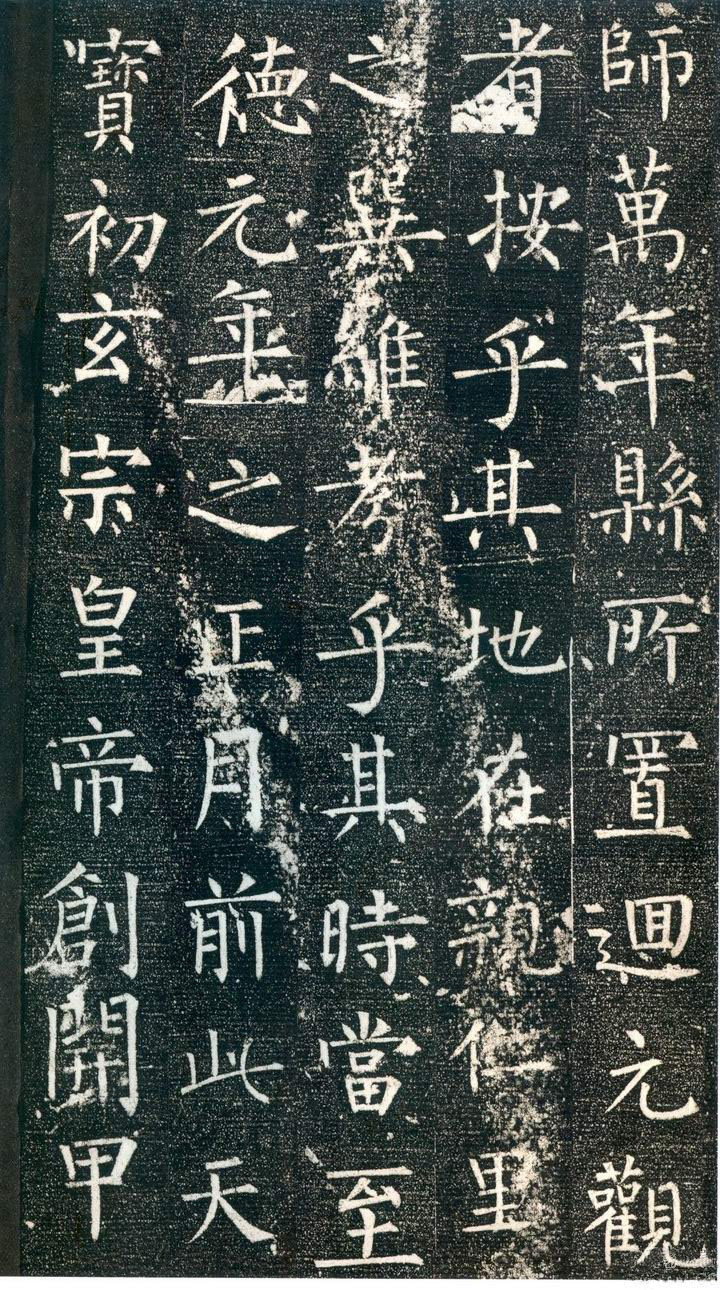 師萬年縣所置迴元觀
者按乎其地在親仁里
之巽維考乎其時當至
徳元年之正月前此天
寶初玄宗皇帝創開甲